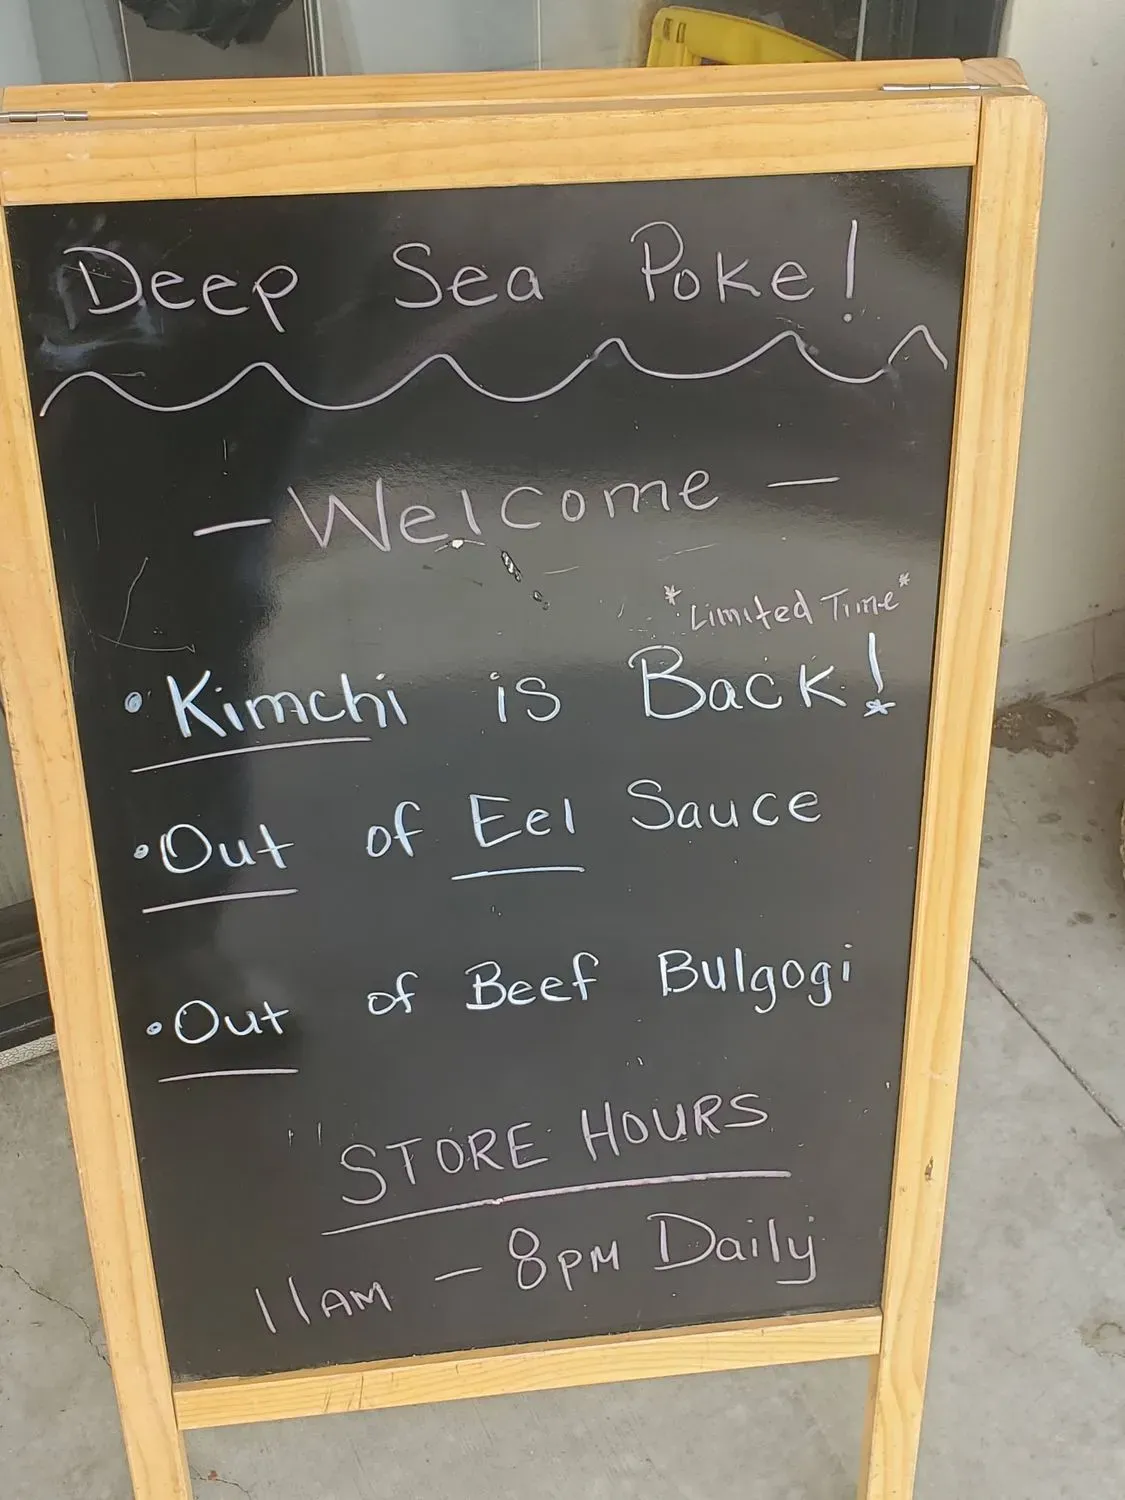 Deep Sea Poke!
- Welcome -
*Limited Time*
• Kimchi is Back!
• Out of Eel Sauce
• Out of Beef Bulgogi
STORE HOURS
11AM - 8PM Daily